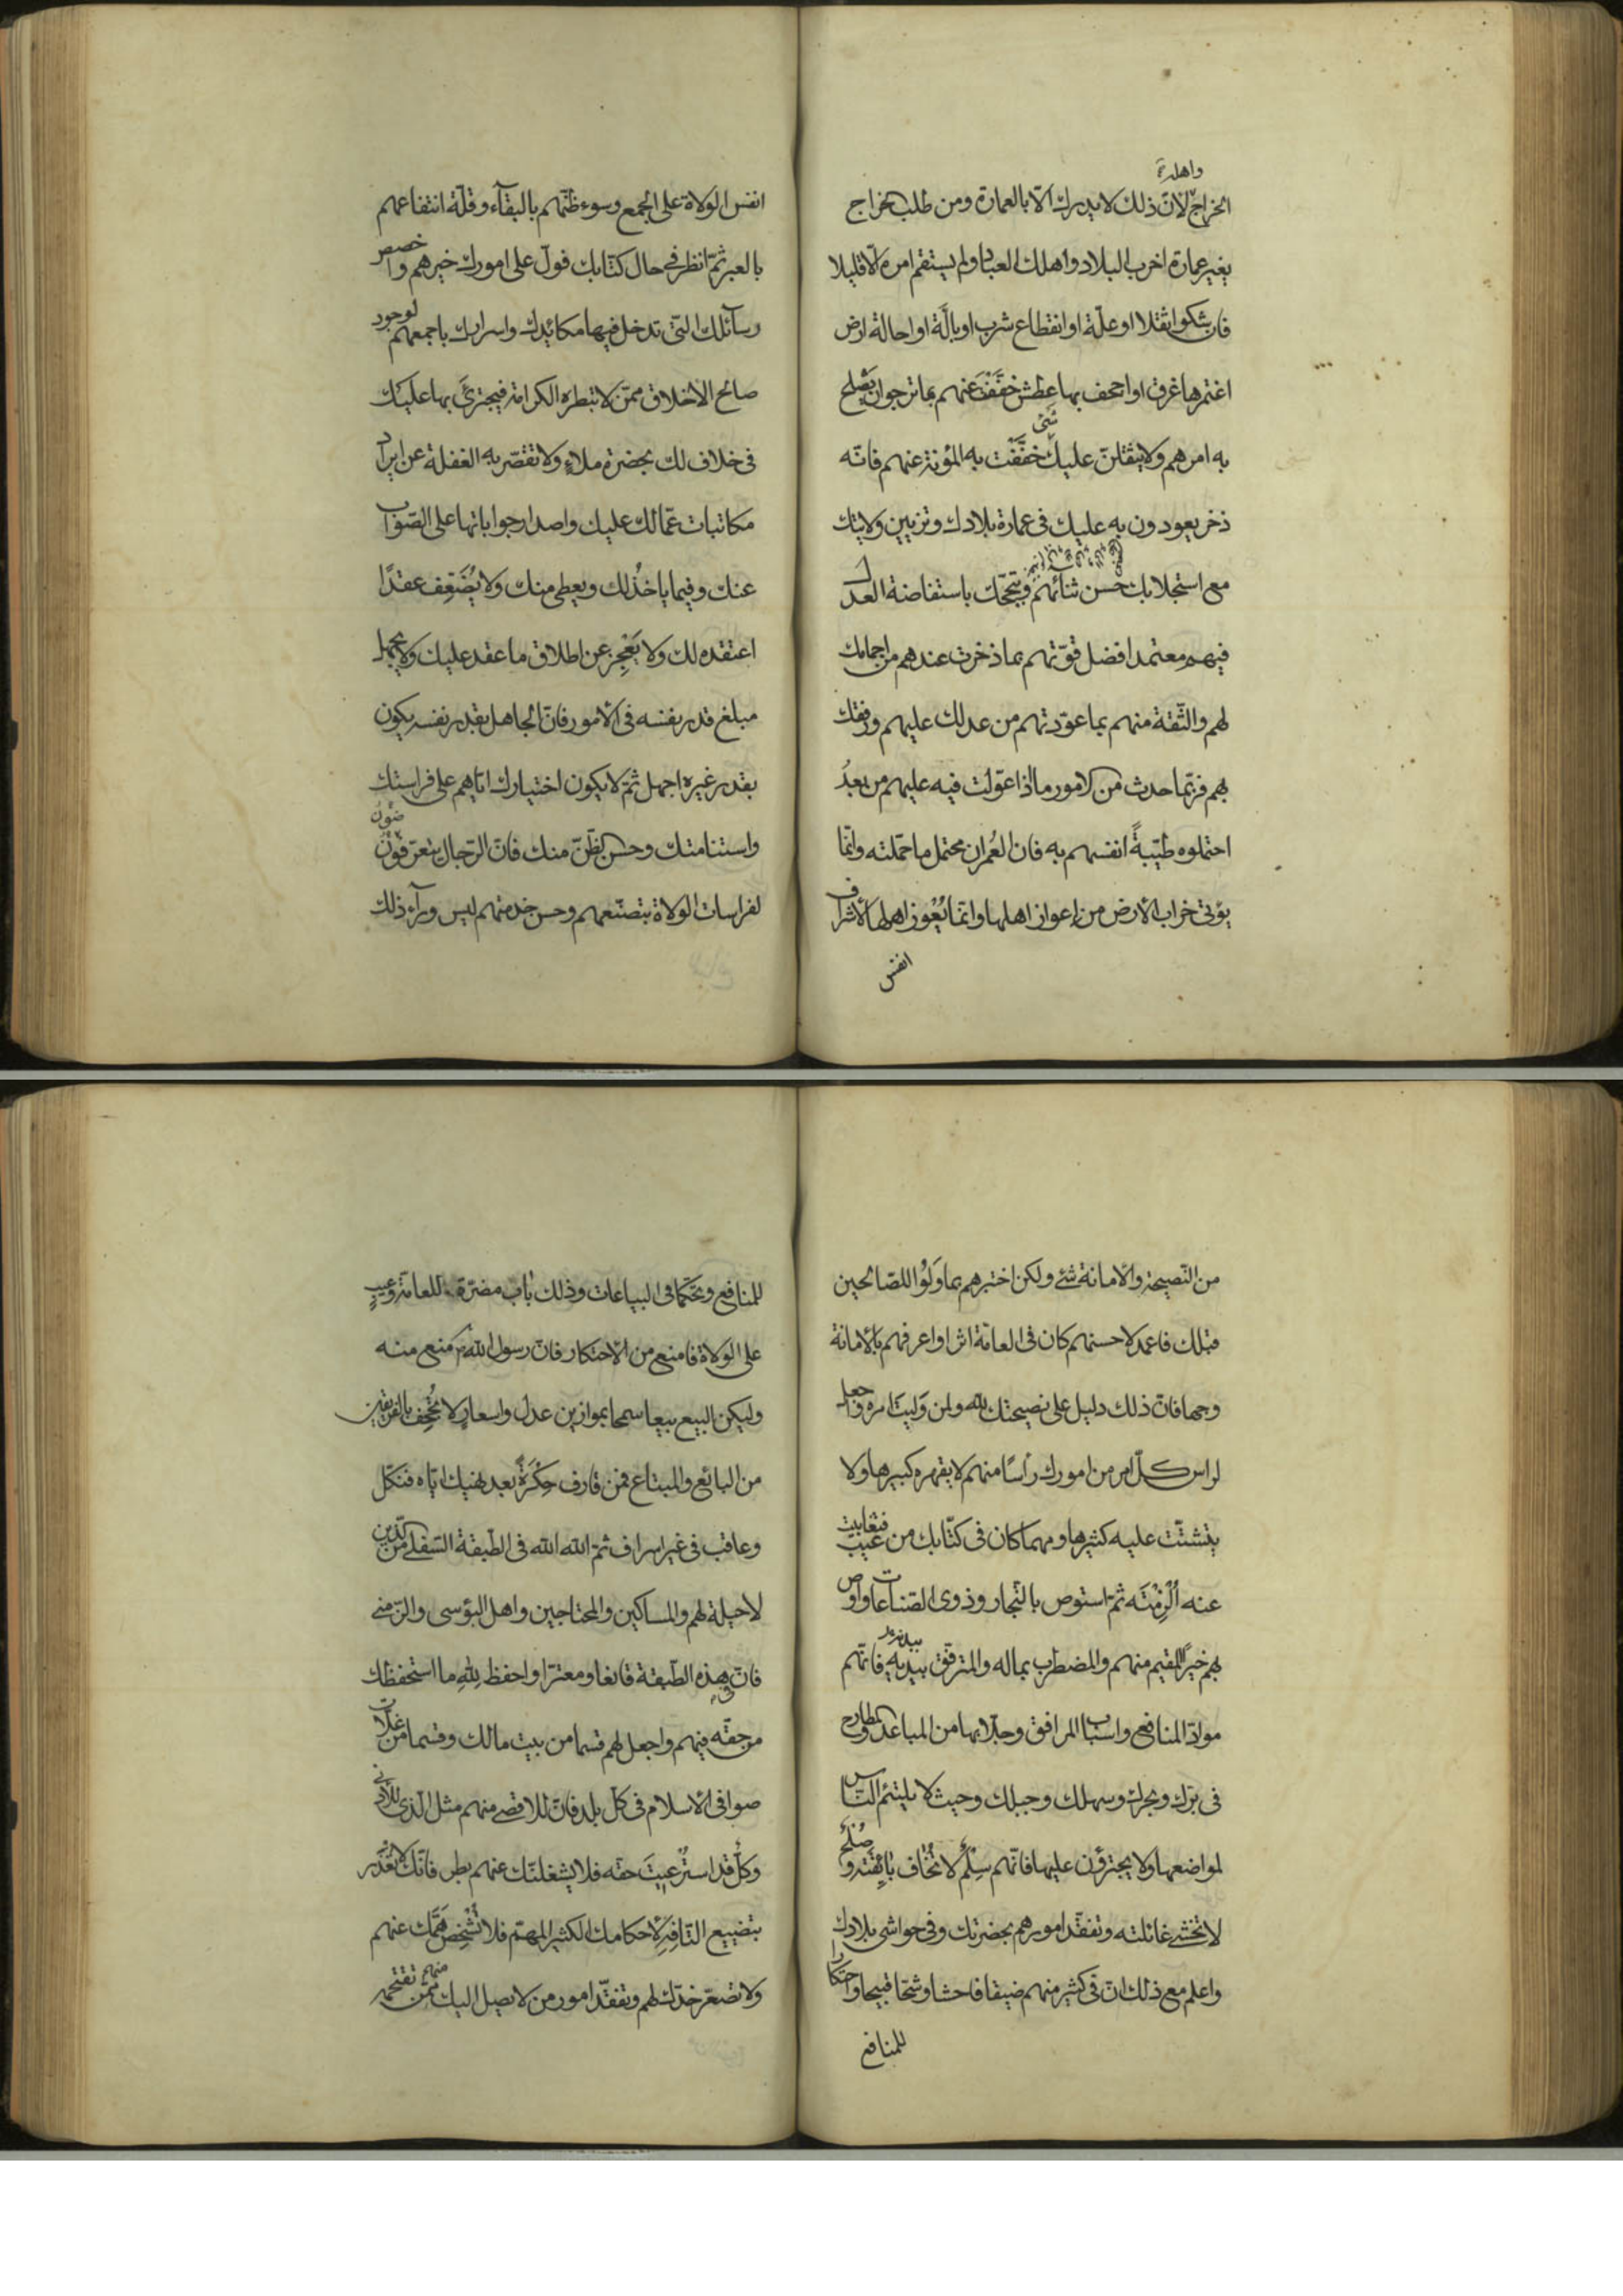 واهله
الخراج لانّ ذلك لا يدرك الّا بالعمارة ومن طلب الخراج
بغير عمارة اخرب البلاد واهلك العباد ولم يستقم امره الّا قليلا
فان شكوا ثقلا او علّة او انقطاع شرب او بالّة او احالة ارض
اغتمرها غرق او اجحف بها عطش خفّفت عنهم بما ترجوا ان يصلح
به امرهم ولا يثقلنّ عليك شئ خفّفت به المؤنة عنهم فانّه
ذخر يعودون به عليك في عمارة بلادك وتزيين ولايتك
مع استجلابك حسن ثنائهم وتبجّحك باستفاضة العدل
فيهم معتمدا افضل قوّتهم بما ذخرت عندهم من اجمامك
لهم والثّقة منهم بما عوّدتهم من عدلك عليهم ورفقك
بهم فربّما حدث من الامور ما اذا عوّلت فيه عليهم من بعدُ
احتملوه طيّبةً انفسهم به فان العُمران محتمل ما حمّلته وانّما
يؤتى خراب الأرض من إعواز اهلها وانّما يُعْوِز اهلها لأشراف
انفس
انفس الولاة على الجمع وسوء ظنّهم بالبقآء وقلّة انتفاعهم
بالعبر ثمّ انظر في حال كتّابك فولّ على امورك خيرهم واخصص
رسآئلك الّتي تدخل فيها مكائدك واسرارك باجمعهم لوجود
صالح الاخلاق ممّن لا تبطره الكرامة فيجترئَ بها عليك
في خلاف لك بحضرة ملاءٍ ولا تقصّر به الغفلة عن ايراد
مكاتبات عمّالك عليك واصدار جواباتها على الصّواب
عنك وفيما ياخذُ لك ويعطى منك ولا يُضَعِف عقدًا
اعتقده لك ولا يَعْجِز عن اطلاق ما عقد عليك ولا يجهل
مبلغ قدر نفسه في الأمور فانّ الجاهل بقدر نفسه يكون
بقدر غيره اجهل ثمّ لا يكون اختيارك ايّاهم على فراستك
واستنامتك وحسن الظّنّ منك فانّ الرّجال يتعرّفون
ضون
لفراسات الولاة بتصنّعهم وحسن خدمتهم ليس ورآء ذلك
من النّصيحة والامانة شئ ولكن اختبرهم بما وَلُوا للصّالحين
قبلك فاعمد لاحسنهم كان في العامّة اثرا واعرفهم بالأمانة
وجها فانّ ذلك دليل على نصيحتك لله ولمن وَليتَ امره واجعل
لراس كلّ امر من امورك رأسًا منهم لا يقهره كبيرها ولا
يتشتّت عليه كثيرها ومهما كان في كتّابك من عيب فتغابيت
عنه اُلْزِمْتَه ثمّ استوص بالتّجار وذوى الصّناعات واوص
بهم خيرًا المقيم منهم والمضطرب بماله والمترفّق ببدنه فانّهم
موادّ المنافع واسباب المرافق وجلّابها من المباعد والمطارح
في برّك وبحرك وسهلك وجبلك وحيث لا يلتئم النّاس
لمواضعها ولا يجترؤن عليها فانّهم سِلْمٌ لا تُخاف بائقته وصُلْحٌ
لا تخشى غائلته وتفقّد امورهم بحضرتك وفي حواشى بلادك
واعلم مع ذلك انّ في كثير منهم ضيقا فاحشا وشحّا قبيحا واحتكارا
للمنافع
للمنافع وتحكّما في البياعات وذلك باب مضرّة للعامّة وعيبٌ
على الولاة فامنع من الأحتكار فانّ رسول الله ص منع منه
وليكن البيع بيعا سمحا بموازين عدل واسعارٍ لا تُجحِف بالفريقين
من البائع والمبتاع فمن قارف حِكْرَةً بعد نهيك ايّاه فنكّل
وعاقب في غير اسراف ثمّ الله الله في الطّبقة السّفلى من الّذين
لا حيلة لهم والمساكين والمحتاجين واهل البؤسى والزّمنى
فانّ في هذه الطّبقة قانعا ومعترّا واحفظ للهِ ما استحفظك
من حقّه فيهم واجعل لهم قسما من بيت مالك وقسما من غلّات
صوافى الأسلام في كلّ بلد فانّ للاقصى منهم مثل الّذى للأدنى
وكلٌّ قد استُرعيتَ حقّه فلا يشغلنّك عنهم بطر فانّك لا تُعْذَر
بتضييع التّافِهِ لأحكامك الكثير المهمّ فلا تُشْخِص همّك عنهم
ولا تصعّر خدّك لهم وتفقّد امور من لا يصل اليك منهم ممّن تقتحمه